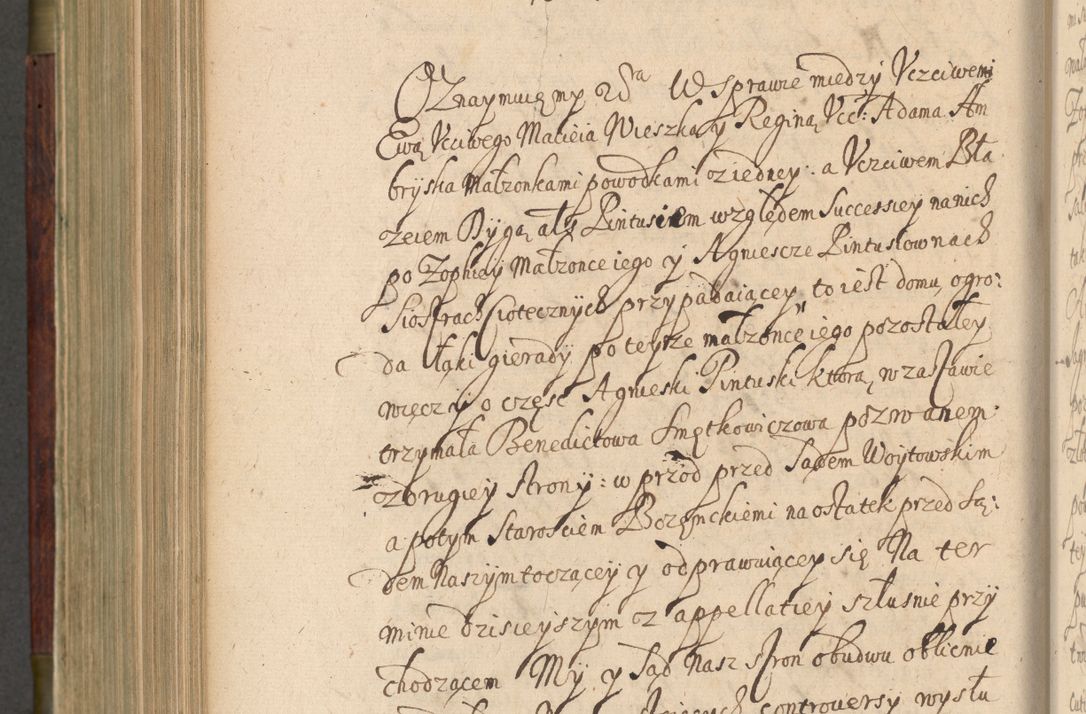 OZnaymuię my etc W sprawie miedzy Vczciwemi
Ewą Vcciwego Macieia Wieszka y Reginą Vcc: Adama Am
bryska Małzonkami powodkami z iedney: a Vczciwem Bła
zeiem Dygą als Pintusiem względem Successiey na nich
po Zophiey Małzonce iego y Agniescze Pintusłownach
Siostrach Ciotecznych przypadaiącey, to iest domu, ogro:
da łąki gierady po teyze małzonce iego pozostałey
więczy o częsc Agnieski Pintuski ktorą w zastawie
trzymała Benedictowa Smętkowiczowa pozwanem
z drugiey strony: w przod przed Sądem Woytowskim
a potym Starosciem Bozęnckiemi na ostatek przed Są:
dem Naszym toczącey y odprawuiącey się Na ter
minie dzisieyszym z appellatiey słusnie przy
chodzącem My y Sąd Nasz stron obudwu oblicnie
controversy wysłu